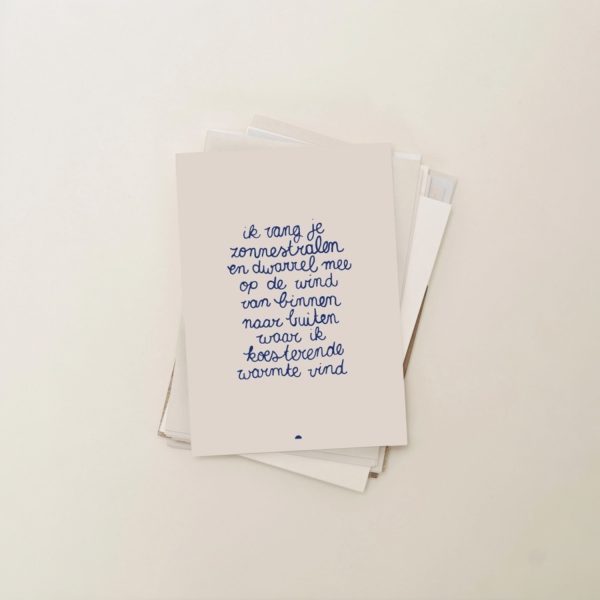 ik vang je
zonnestralen
en dwarrel mee
op de wind
van binnen
naar buiten
waar ik
koesterende
warmte vind